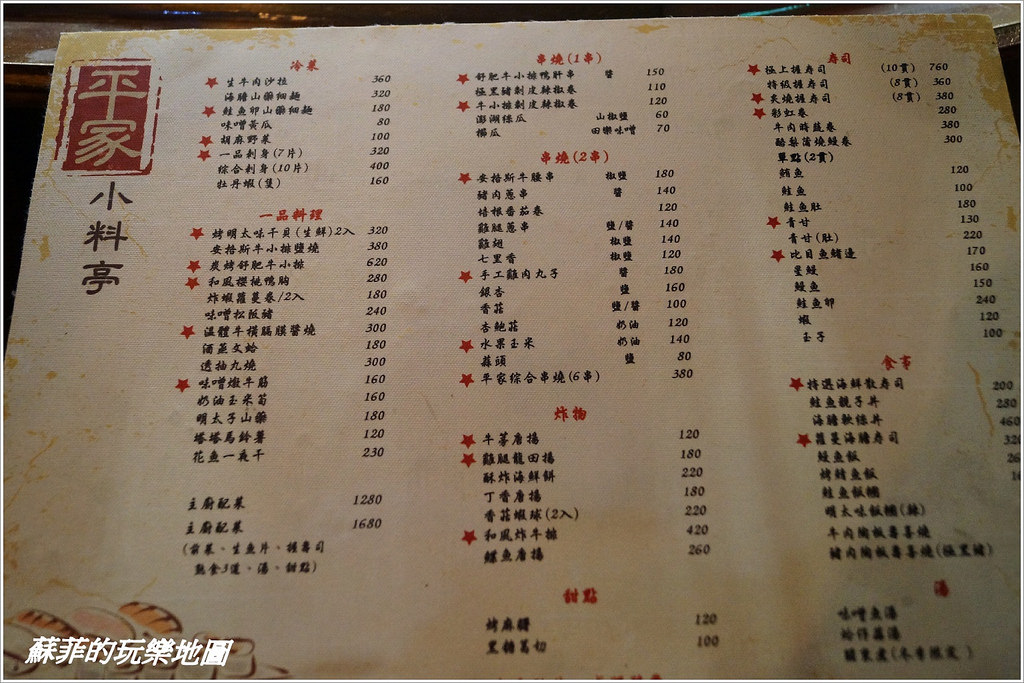 平家
小料亭
冷菜
★ 生牛肉沙拉 360
海膽山藥細麵 320
★ 鮭魚卵山藥細麵 180
味噌黃瓜 80
★ 胡麻野菜 100
★ 一品刺身(7片) 320
綜合刺身(10片) 400
牡丹蝦(隻) 160
一品料理
★ 烤明太味干貝(生鮮)2入 320
安格斯牛小排鹽燒 380
★ 炭烤舒肥牛小排 620
★ 和風櫻桃鴨胸 280
炸蝦蘿蔓卷/2入 180
味噌松阪豬 240
★ 溫體牛橫膈膜醬燒 300
酒蒸文蛤 180
透抽丸燒 300
★ 味噌燉牛筋 160
奶油玉米筍 160
明太子山藥 180
塔塔馬鈴薯 120
花魚一夜干 230
主廚配菜 1280
主廚配菜 1680
(前菜、生魚片、握壽司
熟食3道、湯、甜點)
串燒(1串)
★ 舒肥牛小排鴨肝串 醬 150
極黑豬剝皮辣椒卷 110
★ 牛小排剝皮辣椒卷 120
澎湖絲瓜 山椒鹽 60
櫛瓜 田樂味噌 70
串燒(2串)
★ 安格斯牛腰串 椒鹽 180
豬肉蔥串 醬 140
培根番茄卷 120
雞腿蔥串 鹽/醬 140
雞翅 椒鹽 140
七里香 椒鹽 120
★ 手工雞肉丸子 醬 180
銀杏 鹽 160
香菇 鹽/醬 100
杏鮑菇 奶油 120
★ 水果玉米 奶油 140
蒜頭 鹽 80
★ 平家綜合串燒(6串) 380
炸物
★ 牛蒡唐揚 120
★ 雞腿龍田揚 180
酥炸海鮮餅 220
丁香唐揚 180
香菇蝦球(2入) 220
★ 和風炸牛排 420
鰈魚唐揚 260
甜點
烤麻糬 120
黑糖葛切 100
壽司
★ 極上握壽司 (10貫) 760
特級握壽司 (8貫) 360
★ 炙燒握壽司 (8貫) 380
★ 彩虹卷 280
牛肉時蔬卷 380
酪梨蒲燒鰻卷 300
單點(2貫)
鮪魚 120
鮭魚 100
鮭魚肚 180
★ 青甘 130
青甘(肚) 220
★ 比目魚鰭邊 170
星鰻 160
鰻魚 150
鮭魚卵 240
蝦 120
玉子 100
食事
★ 特選海鮮散壽司 200
鮭魚親子丼 280
海膽軟絲丼 460
★ 蘿蔓海膽壽司 320
鰻魚飯
烤鯖魚飯
鮭魚飯糰
明太味飯糰(辣)
牛肉陶板壽喜燒
豬肉陶板壽喜燒(極黑豬)
湯
味噌魚湯
蛤仔湯
關東煮(冬季限定)
蘇菲的玩樂地圖